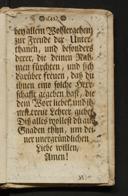 bey allem Wohlergehen
zur Freude der Unter-
thanen, und besonders
derer, die deinen Nah-
men fürchten, und sich
darüber freuen, daß du
ihnen eine solche Herr-
schafft gegeben hast, die
dein Wort liebet, und ih-
treue Lehrer
Diß alles wollest du aus
Gnaden thun, um dei-
ner unergründlichen
Liebe willen,
Amen!